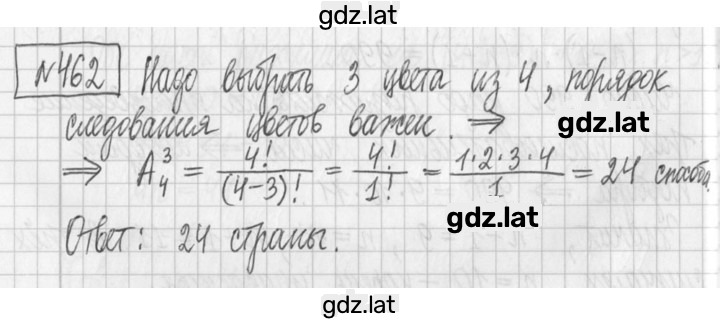 gdz.lat
№462 Надо выбрать 3 цвета из 4, порядок
следования цветов важен. ⇒
gdz.lat
⇒ A₄³ = 4!/(4-3)! = 4!/1! = 1·2·3·4/1 = 24 способа.
gdz.lat
Ответ: 24 страны.
gdz.lat